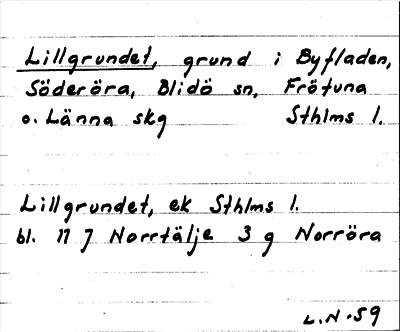 Lillgrundet, grund i Byfladen,
Söderöra, Blidö sn, Frötuna
o. Länna skg Sthlms l.
Lillgrundet, ek Sthlms l.
bl. 11 7 Norrtälje 3 g Norröra
L.N.59